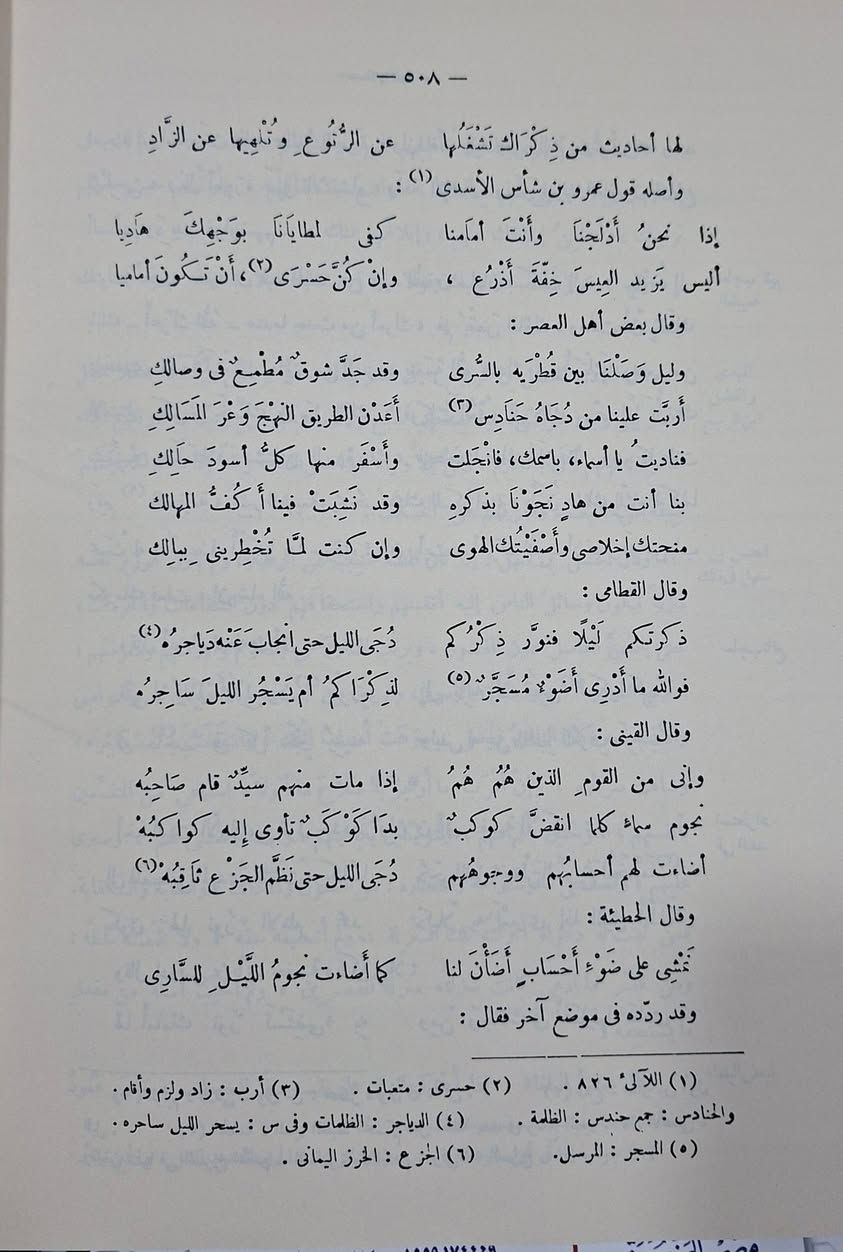 — ٥٠٨ —
لها أحاديث من ذِكْرَاك تَشْغَلُها عن الرُّتُوعِ وتُلْهِيها عن الزَّادِ
وأصله قول عمرو بن شأس الأسدى (١) :
إذا نحنُ أَدْلَجْنَا وأَنْتَ أمامنا كفى لمطايَانَا بوَجْهِكَ هَادِيا
أليس يَزِيد العِيسَ خِفّةَ أَذْرُعٍ ، وإنْ كُنَّ حَسْرَى (٢)، أَنْ تَكُونَ أماميا
وقال بعض أهل العصر :
وليل وَصَلْنَا بين قُطْرَيه بالسُّرى وقد جَدَّ شوقٌ مُطْمِعٌ فى وصالكِ
أَربَّت علينا من دُجَاهُ حَنَادِس (٣) أَعَدْن الطريق النَّهْجَ وَعْرَ المَسَالِكِ
فناديتُ يا أسماء، باسمك، فانْجَلت وأَسْفَر منها كلُّ أسودَ حَالِكِ
بنا أنت من هادٍ نَجَوْنَا بذكرهِ وقد نَشِبَتْ فينا أَكُفُّ المهالك
منحتك إخلاصى وأَصْفَيْتُك الهوى وإن كنت لمَّا تُخْطِرينى بِبالِك
وقال القطامى :
ذكرتكم لَيْلًا فنوَّر ذِكْرُكم دُجَى الليل حتى انجابَ عَنْه دَياجرُه (٤)
فوالله ما أَدْرِى أَضَوْءٌ مُسَجَّرٌ (٥) لذِكْرَاكمُ أم يَسْجُر الليلَ سَاجِرُه
وقال القينى :
وإنى من القومِ الذين هُمُ هُمُ إذا مات منهم سيِّدٌ قام صَاحِبُه
نجوم سماءٍ كلما انقضَّ كوكبٌ بدَا كَوْكَبٌ تأوى إليه كواكبُهْ
أضاءت لهم أحسابُهم ووجوهُهم دُجَى الليل حتى نَظَّم الجَزْعَ ثاقِبُهْ (٦)
وقال الحطيئة :
نَمْشِى على ضَوْءِ أَحْسَابٍ أَضَأْنَ لنا كما أَضاءت نجومُ اللَّيْلِ للسَّارِى
وقد ردّده فى موضع آخر فقال :
(١) اللآلئ ٨٢٦ . (٢) حسرى : متعبات . (٣) أرب : زاد ولزم وأقام .
والحنادس : جمع حندس : الظلمة . (٤) الدياجر : الظلمات وفى س : يسحر الليل ساحره .
(٥) المسجر : المرسل. (٦) الجزع : الخرز اليمانى .